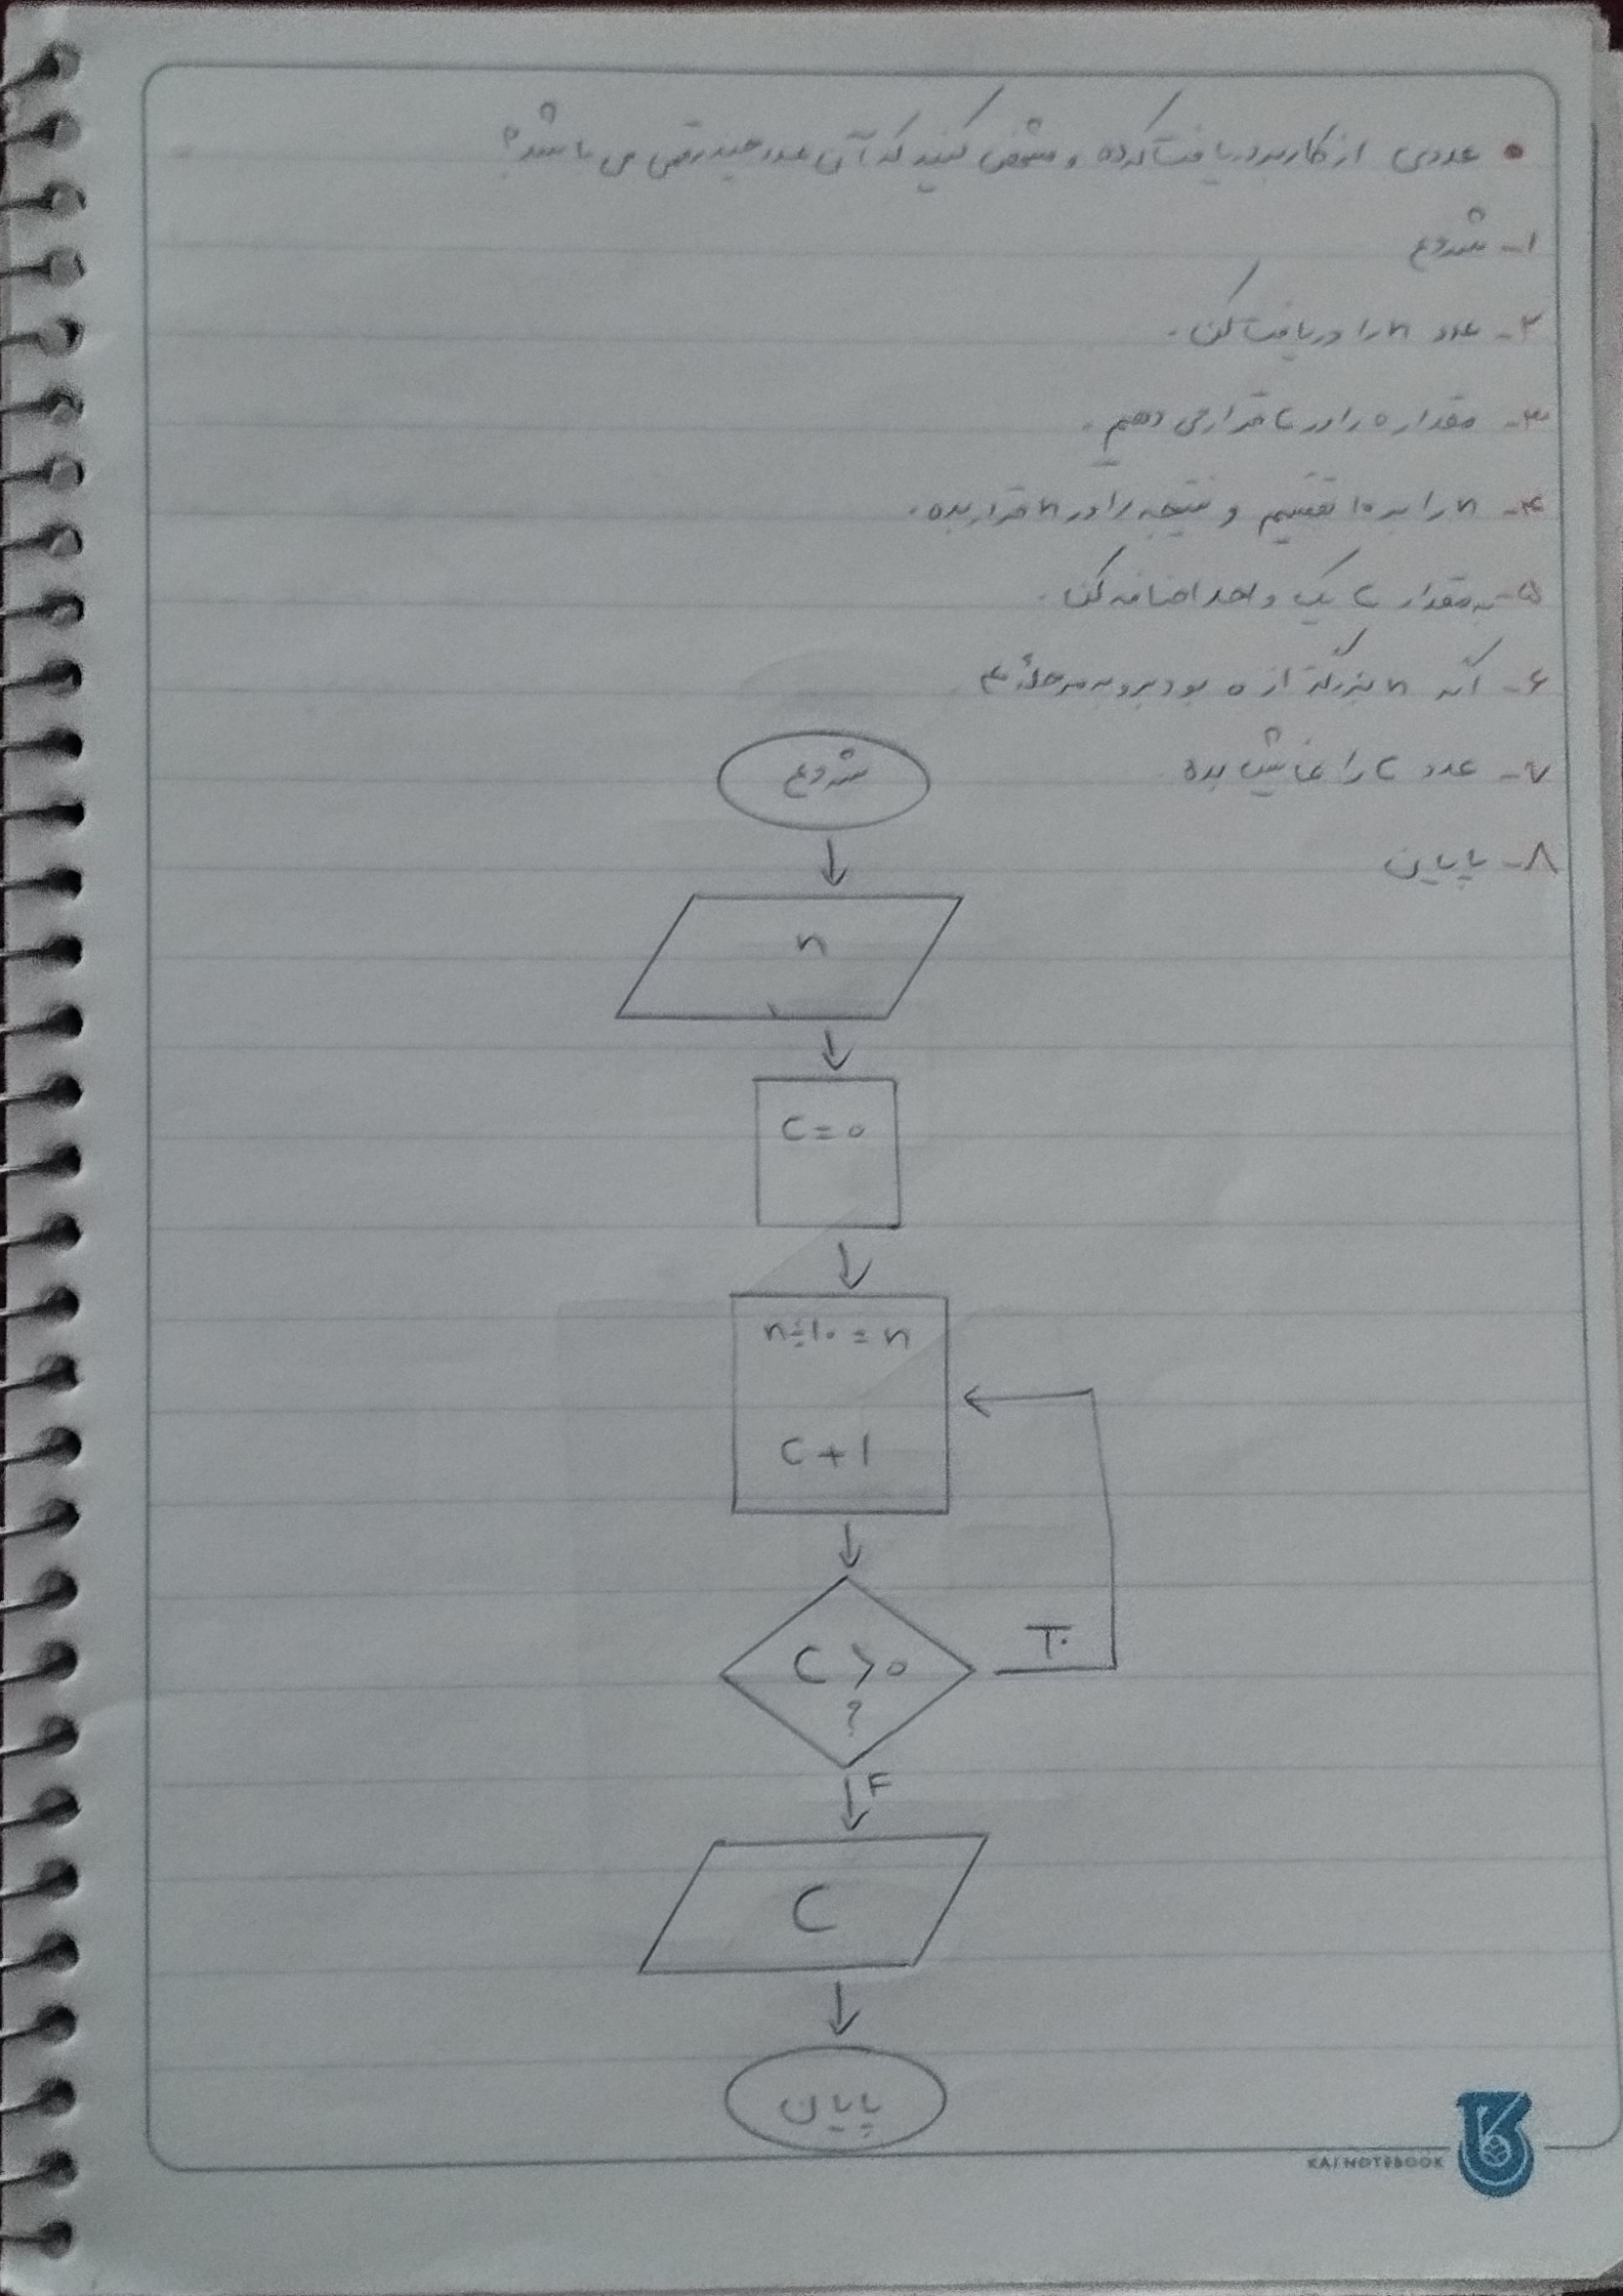 • عددی از کاربر دریافت کرده و مشخص کنید که آن عدد چند رقمی می باشد؟
۱- شروع
۲- عدد n را دریافت کن.
۳- مقدار ه را در c قرار می دهیم.
۴- n را به ۱۰ تقسیم و نتیجه را در n قرار بده.
۵- به مقدار c یک واحد اضافه کن.
۶- اگر n بزرگتر از ه بود برو به مرحلهٔ ۴
۷- عدد c را نمایش بده
۸- پایان
شروع
n
c = 0
n ÷ ۱۰ = n
c + 1
c > 0
?
T
F
C
پایان
KAJ NOTEBOOK